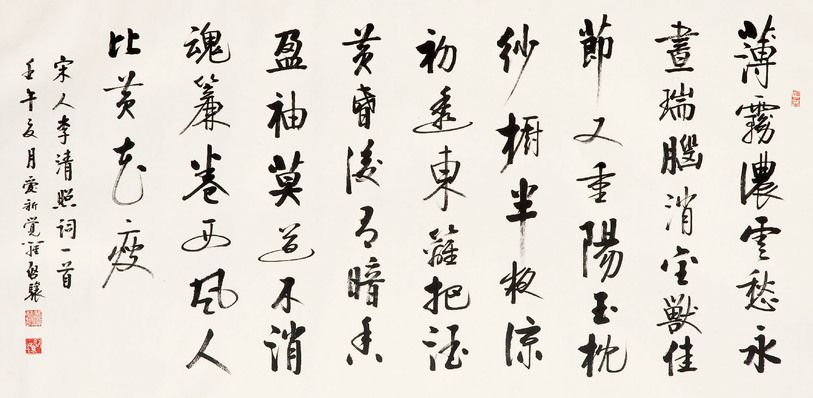 薄霧濃雲愁永
晝瑞腦消金獸佳
節又重陽玉枕
紗櫥半夜涼
初透東籬把酒
黃昏後有暗香
盈袖莫道不消
魂簾卷西風人
比黃花瘦
宋人李清照詞一首
壬午夏月愛新覺羅啟驤